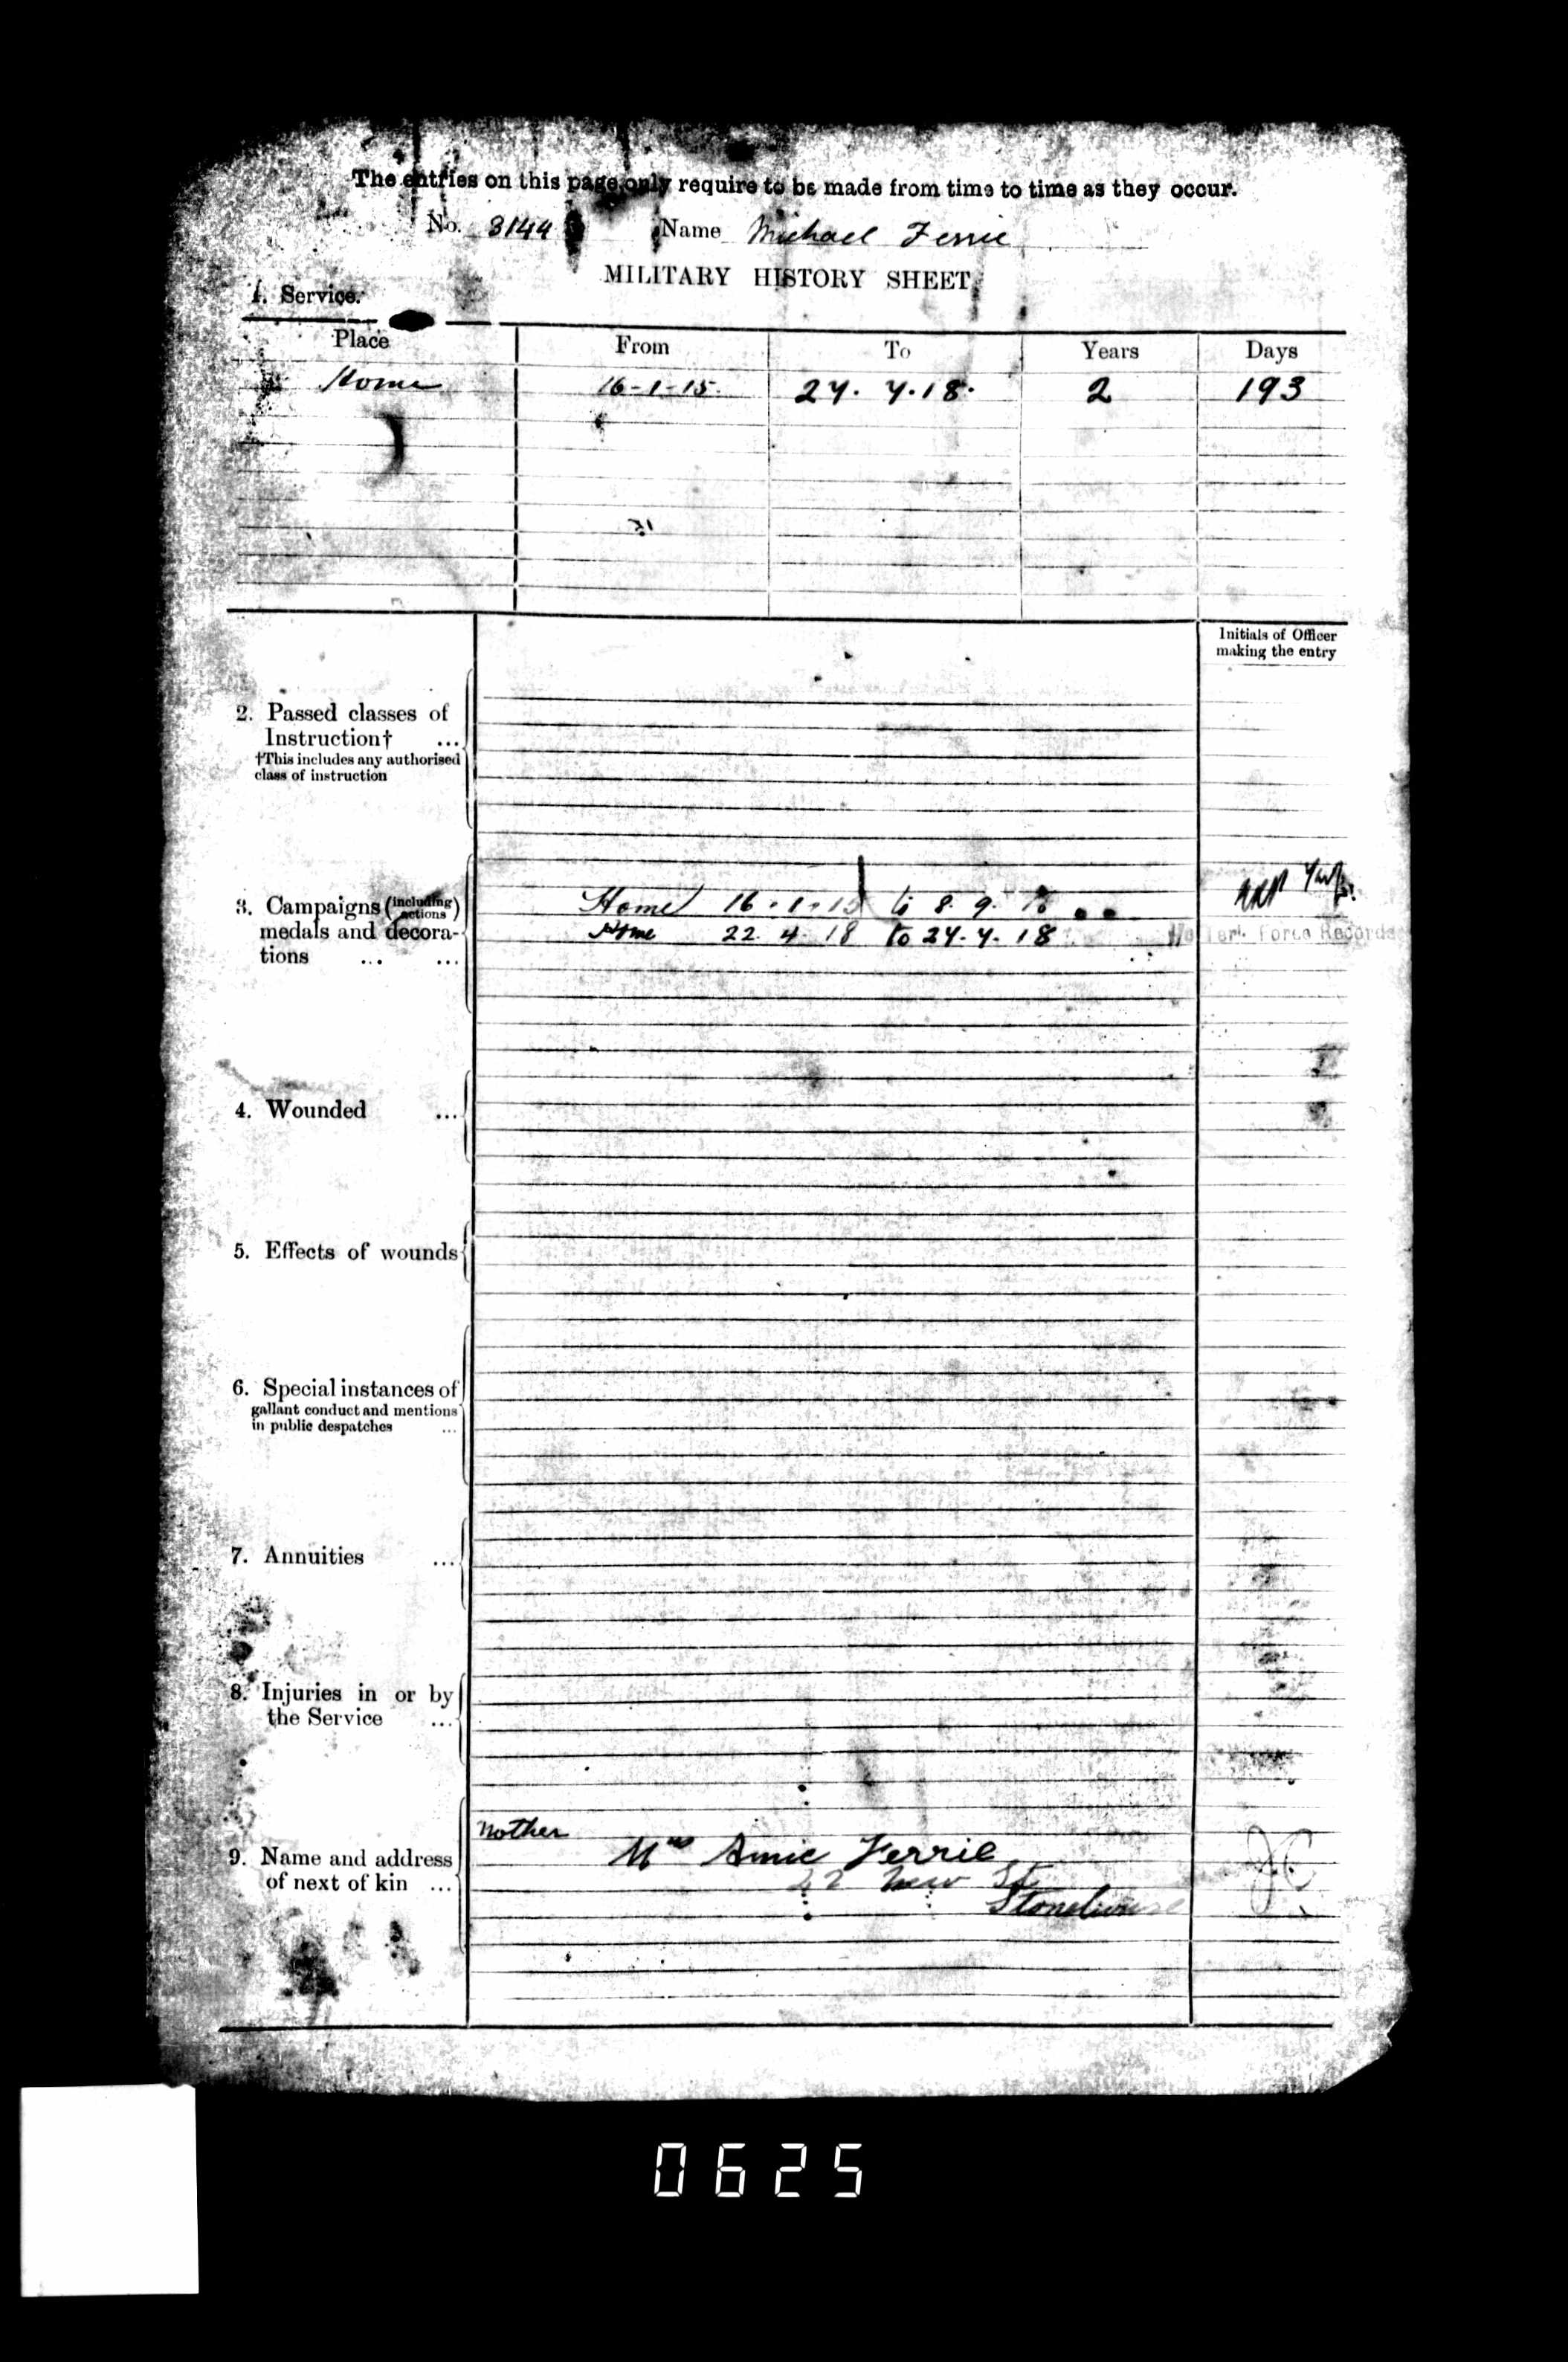 The entries on this page only require to be made from time to time as they occur.
No. 3144 Name Michael Ferrie
MILITARY HISTORY SHEET
1. Service.
Place From To Years Days
Home 16-1-15. 27. 7.18. 2 193
Initials of Officer
making the entry
2. Passed classes of
Instruction† ...
†This includes any authorised
class of instruction
3. Campaigns (including actions)
medals and decora-
tions ... ...
Home 16.1.15 to 8.9.
Home 22.4.18 to 27.7.18
Force Records
4. Wounded ...
5. Effects of wounds
6. Special instances of
gallant conduct and mentions
in public despatches ...
7. Annuities ...
8. Injuries in or by
the Service ...
9. Name and address
of next of kin ...
Mother
Mrs Annie Ferrie
22 New St
Stonehouse
JC
0625